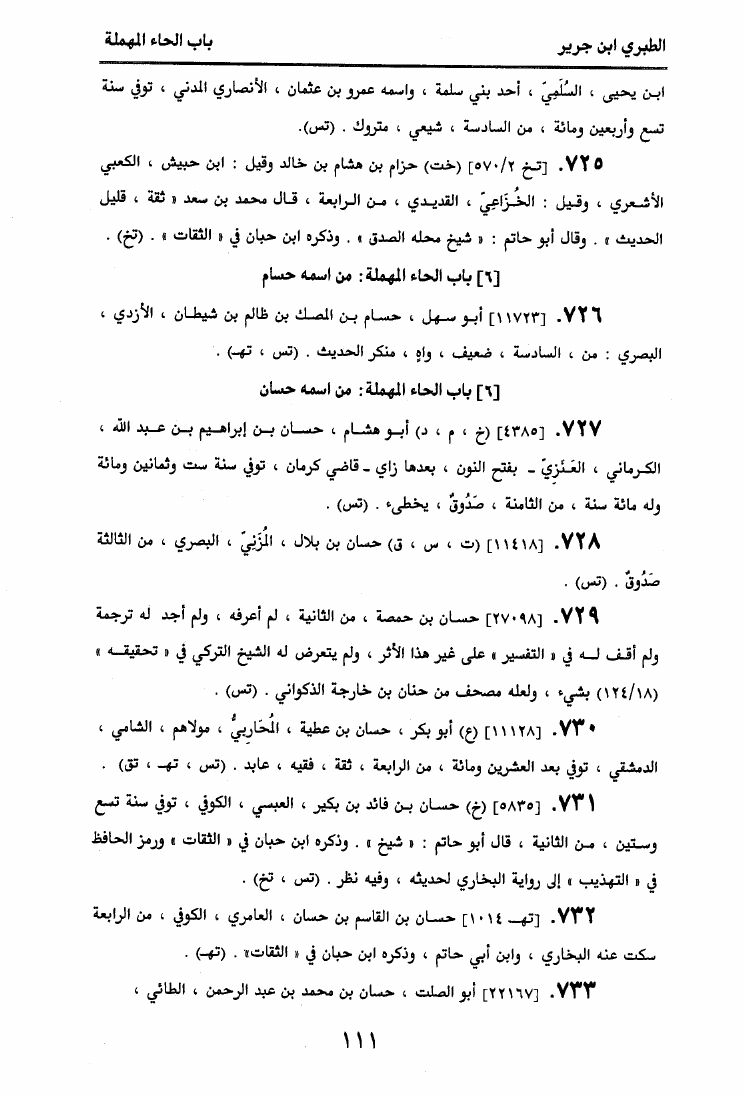 الطبري ابن جرير
باب الحاء المهملة
ابن يحيى ، السُلَمِيّ ، أحد بني سلمة ، واسمه عمرو بن عثمان ، الأنصاري المدني ، توفي سنة
تسع وأربعين ومائة ، من السادسة ، شيعي ، متروك . (تس).
٧٢٥. [تخ ٥٧٠/٢] (خت) حزام بن هشام بن خالد وقيل : ابن حبيش ، الكعبي
الأشعري ، وقيل : الخُزَاعِيّ ، القديدي ، من الرابعة ، قال محمد بن سعد « ثقة ، قليل
الحديث » . وقال أبو حاتم : « شيخ محله الصدق » . وذكره ابن حبان في « الثقات » . (تخ) .
[٦] باب الحاء المهملة: من اسمه حسام
٧٢٦. [١١٧٢٣] أبو سهل ، حسام بن المصك بن ظالم بن شيطان ، الأزدي ،
البصري : من ، السادسة ، ضعيف ، واهٍ ، منكر الحديث . (تس ، تهـ) .
[٦] باب الحاء المهملة: من اسمه حسان
٧٢٧. [٤٣٨٥] (خ ، م ، د) أبو هشام ، حسان بن إبراهيم بن عبد الله ،
الكرماني ، العَنَزِيّ ـ بفتح النون ، بعدها زاي ـ قاضي كرمان ، توفي سنة ست وثمانين ومائة
وله مائة سنة ، من الثامنة ، صَدُوقٌ ، يخطىء . (تس) .
٧٢٨. [١١٤١٨] (ت ، س ، ق) حسان بن بلال ، المُزَنِيّ ، البصري ، من الثالثة
صَدُوقٌ . (تس) .
٧٢٩. [٢٧٠٩٨] حسان بن حمصة ، من الثانية ، لم أعرفه ، ولم أجد له ترجمة
ولم أقف لـه في « التفسير » على غير هذا الأثر ، ولم يتعرض له الشيخ التركي في « تحقيقه »
(١٢٤/١٨) بشيء ، ولعله مصحف من حنان بن خارجة الذكواني . (تس) .
٧٣٠. [١١١٢٨] (ع) أبو بكر ، حسان بن عطية ، المُحَارِبيُّ ، مولاهم ، الشامي ،
الدمشقي ، توفي بعد العشرين ومائة ، من الرابعة ، ثقة ، فقيه ، عابد . (تس ، تهـ ، تق) .
٧٣١. [٥٨٣٥] (خ) حسان بن فائد بن بكير ، العبسي ، الكوفي ، توفي سنة تسع
وستين ، من الثانية ، قال أبو حاتم : « شيخ » . وذكره ابن حبان في « الثقات » ورمز الحافظ
في « التهذيب » إلى رواية البخاري لحديثه ، وفيه نظر . (تس ، تخ) .
٧٣٢. [تهـ ١٠١٤] حسان بن القاسم بن حسان ، العامري ، الكوفي ، من الرابعة
سكت عنه البخاري ، وابن أبي حاتم ، وذكره ابن حبان في « الثقات» . (تهـ) .
٧٣٣. [٢٢١٦٧] أبو الصلت ، حسان بن محمد بن عبد الرحمن ، الطائي ،
١١١